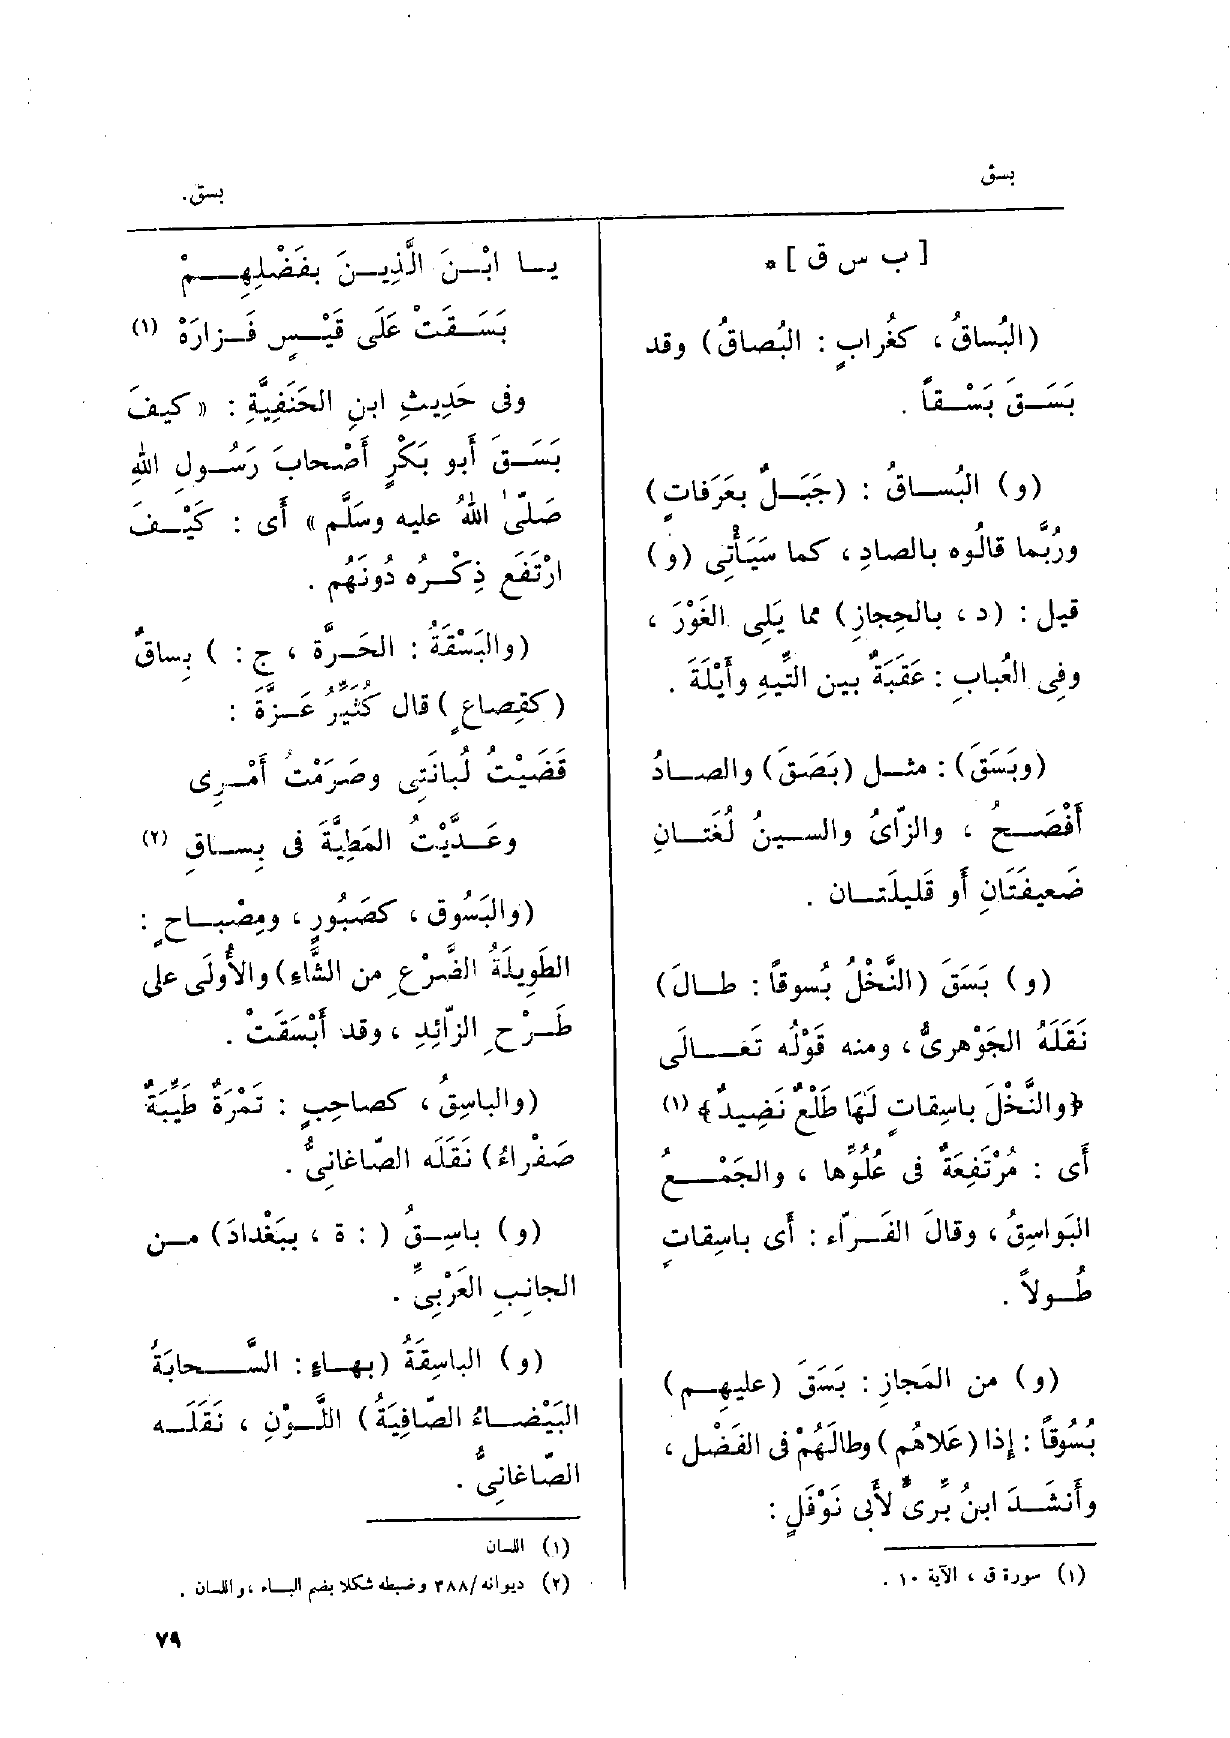 بسق
بسق.
[ ب س ق ] *
(البُساقُ ، كغُرابٍ : البُصاقُ) وقد
بَسَـقَ بَسْـقاً .
(و) البُسـاقُ : (جَبَـلٌ بعَرَفاتٍ)
ورُبَّما قالُوه بالصادِ ، كما سَيَأْتِى (و)
قيل : (د ، بالحِجازِ) مما يَلِى الغَوْرَ ،
وفى العُبابِ : عَقَبَةٌ بين التِّيهِ وأَيْلَةَ .
(وبَسَقَ) : مثـل (بَصَقَ) والصـادُ
أَفْصَـحُ ، والزّاىُ والسـينُ لُغَتـانِ
ضَعيفَتَانِ أو قَليلَتـان .
(و) بَسَقَ (النَّخْلُ بُسوقاً : طـالَ)
نَقَلَهُ الجَوْهرىُّ ، ومنه قَوْلُه تَعَـالَى
﴿والنَّخْلَ باسِقاتٍ لَهَا طَلْعٌ نَضِيدٌ﴾ (١)
أى : مُرْتَفِعَةٌ فى عُلُوِّها ، والجَمْـعُ
البَواسِقُ ، وقالَ الفَـرّاء : أى باسِقاتٍ
طُـولاً .
(و) من المَجازِ : بَسَقَ (عليهِـم)
بُسُوقاً : إذا (عَلاهُم) وطالَهُمْ فى الفَضْل ،
وأَنشَـدَ ابنُ بَرِّىٍّ لأبى نَوْفَلٍ :
(١) سورة ق ، الآية ١٠ .
يـا ابْـنَ الَّذِيـنَ بفَضْلِهِـمْ
بَسَـقَتْ عَلَى قَيْـسٍ فَـزارَهْ (١)
وفى حَدِيثِ ابنِ الحَنَفِيَّةِ : « كيفَ
بَسَـقَ أَبو بَكْرٍ أَصْحابَ رَسُـولِ اللهِ
صَلَّى اللهُ عليه وسَلَّم » أَى : كَيْـفَ
ارْتَفَع ذِكْـرُه دُونَهُم .
(والبَسْقَةُ : الحَـرَّة ، ج : ) بِساقٌ
(كقِصاعٍ) قال كُثَيِّرُ عَـزَّةَ :
قَضَيْتُ لُبانَتِى وصَرَمْتُ أَمْـرِى
وعَـدَّيْتُ المَطِيَّةَ فى بِسـاقِ (٢)
(والبَسُوق ، كصَبُورٍ ، ومِصْبـاحٍ :
الطَوِيلَةُ الضَّرْعِ من الشَّاءِ) والأُولَى على
طَـرْحِ الزّائِدِ ، وقد أَبْسَقَتْ .
(والباسِقُ ، كصاحِبٍ : تَمْرَةٌ طَيِّبَةٌ
صَفْراءُ) نَقَلَه الصّاغانِىُّ .
(و) باسِـقُ ( : ة ، ببَغْدادَ) مـن
الجانِبِ الغَرْبِىِّ .
(و) الباسِقَةُ (بهـاءٍ : السَّـحابَةُ
البَيْضـاءُ الصّافِيَةُ) اللَّـوْنِ ، نَقَلَـه
الصّاغانِىُّ .
(١) اللسان
(٢) ديوانه/٣٨٨ وضبطه شكلا بضم البـاء ، واللسان .
٧٩